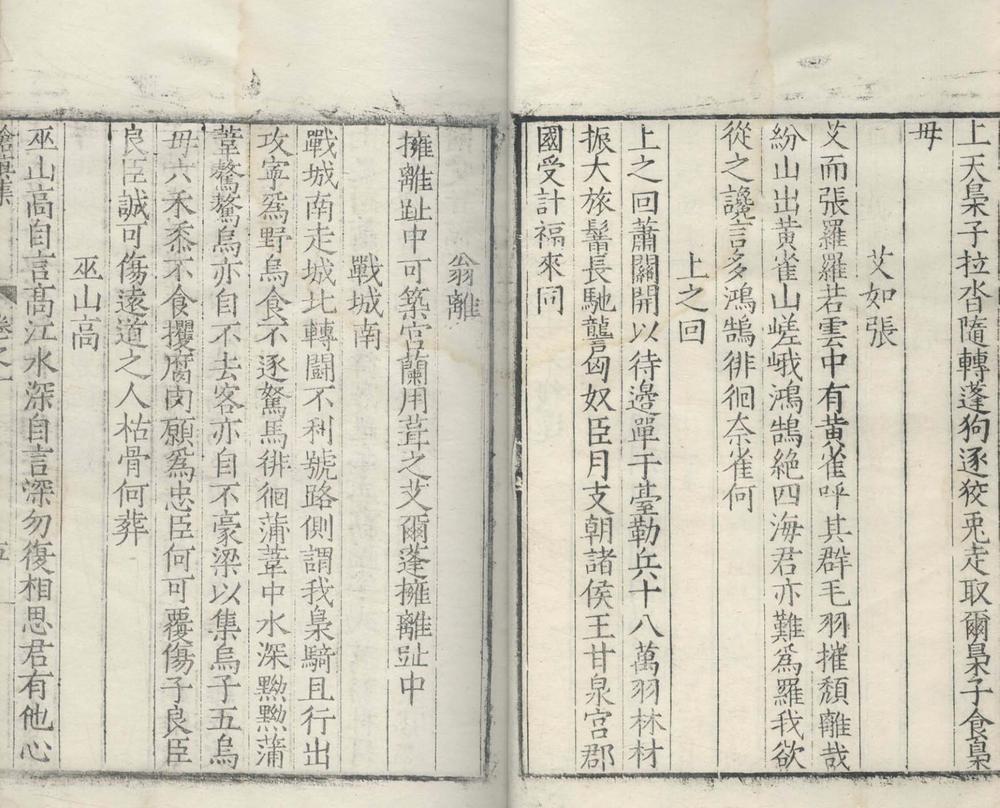 上天梟子拉沓隨轉蓬狗逐狡兎走取爾梟子食梟
毋
艾如張
艾而張羅羅若雲中有黄雀呼其群毛羽摧頹離哉
紛山出黄雀山嵯峨鴻鵠絶四海君亦難爲羅我欲
從之讒言多鴻鵠徘徊奈雀何
上之回
上之回蕭關開以待邊單于臺勒兵十八萬羽林材
振大旅鬐長馳讋匈奴臣月支朝諸侯王甘泉宮郡
國受計福來同
翁離
擁離趾中可築宫蘭用葺之艾爾蓬擁離趾中
戰城南
戰城南走城北轉鬭不利號路側謂我梟騎且行出
攻寧爲野烏食不逐駑馬徘徊蒲葦中水深黝黝蒲
葦驁驁烏亦自不去客亦自不豪梁以集烏子五烏
毋六禾黍不食攫腐肉願爲忠臣何可覆傷子良臣
良臣誠可傷遠道之人枯骨何葬
巫山高
巫山高自言高江水深自言深勿復相思君有他心
滄溟集 卷之一 五